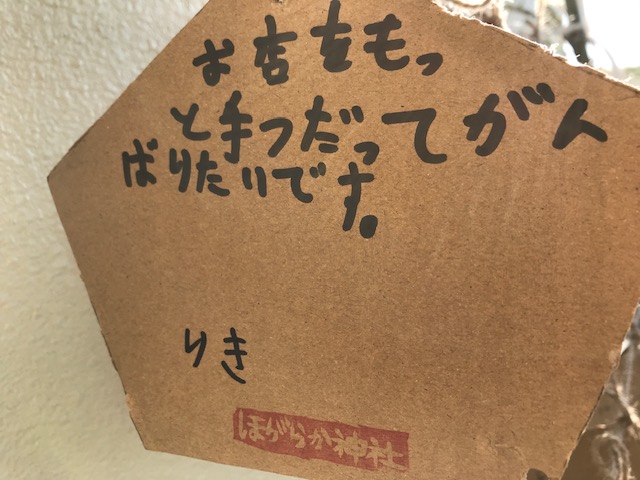 お店をもっ
と手つだってがん
ばりたいです。
りき
ほがらか神社